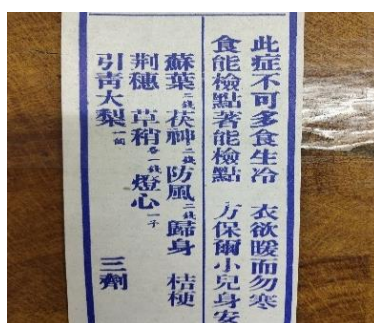 此症不可多食生冷 衣欲暖而勿寒
食能檢點著能檢點 方保爾小兒身安
蘇葉二錢 茯神二錢 防風二錢 歸身 桔梗
荆穗 草稍各一錢 燈心一子
引青大梨一個 三劑